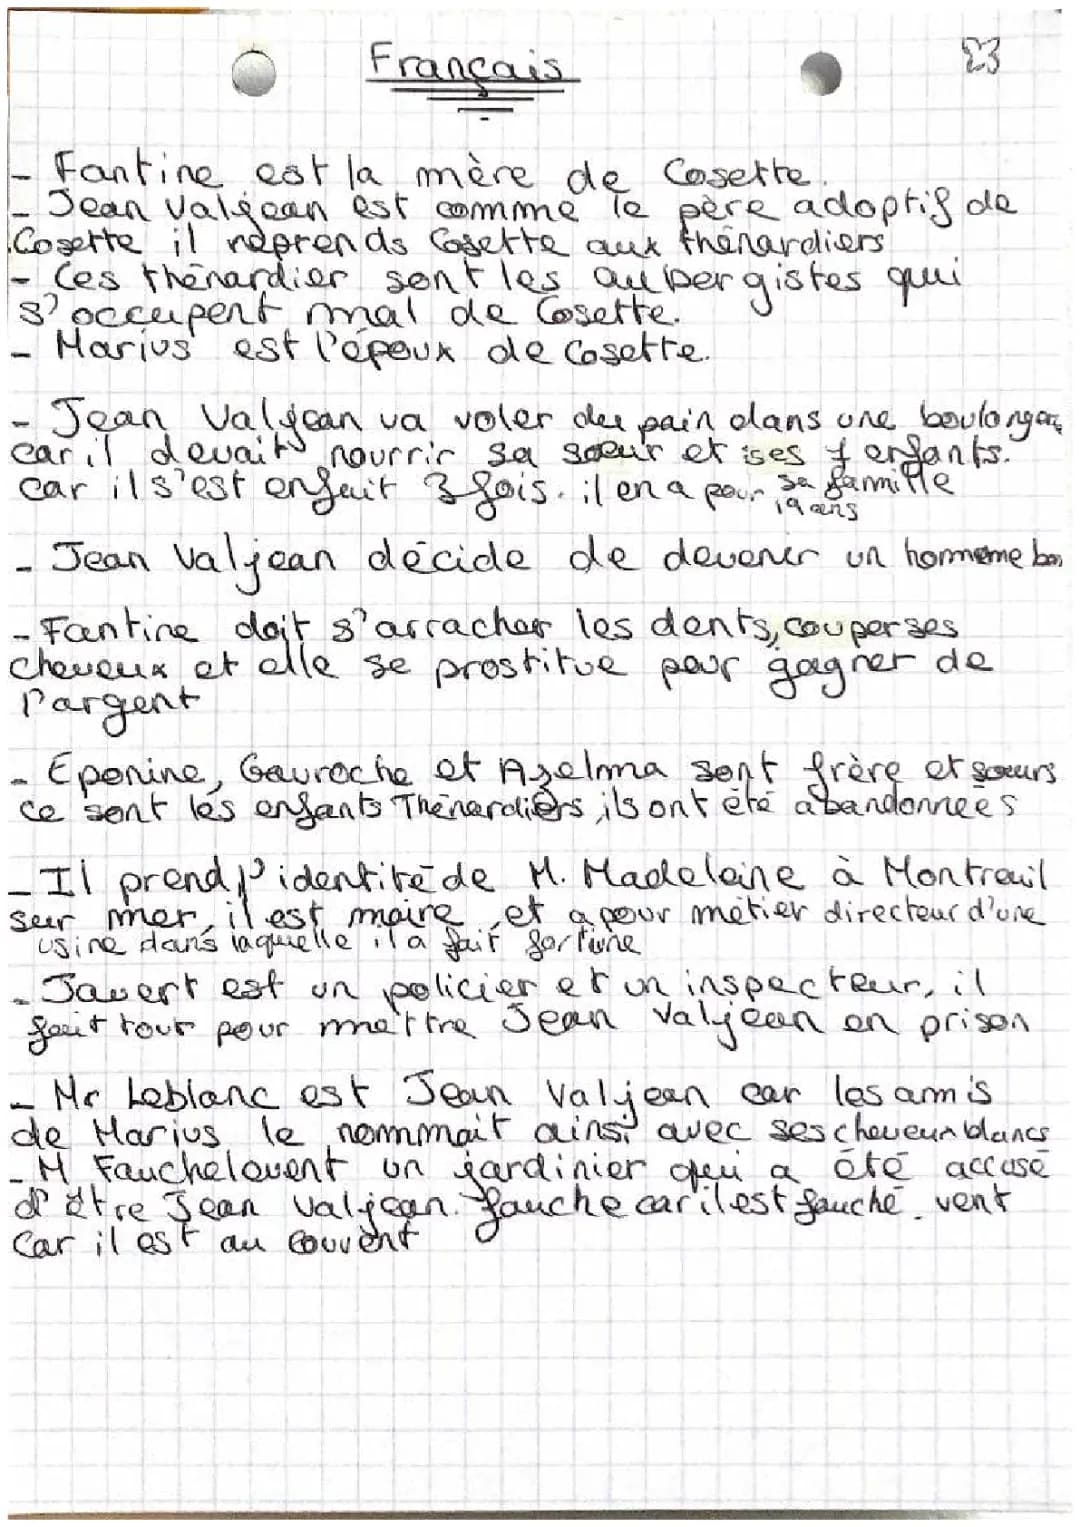 Français
- Fantine est la mère de Cosette.
- Jean Valjean est comme le père adoptif de
Cosette il reprends Cosette aux thénardiers
- Ces thénardier sont les aubergistes qui
s'occupent mal de Cosette.
- Marius est l'époux de Cosette.
- Jean Valjean va voler du pain dans une boulangerie
car il devait nourrir sa sœur et ses 7 enfants.
car il s'est enfuit 3 fois. il en a pour sa famille
19 ans
- Jean Valjean décide de devenir un hommme bon
- Fantine doit s'arracher les dents, couper ses
cheveux et elle se prostitue pour gagner de
l'argent
- Eponine, Gavroche et Azelma sont frère et sœurs
ce sont les enfants Thénardiers, ils ont été abandonnées
- Il prend l'identité de M. Madeleine à Montreuil
sur mer, il est maire, et a pour métier directeur d'une
usine dans laquelle il a fait fortune
- Javert est un policier et un inspecteur, il
fait tout pour mettre Jean Valjean en prison
- Mr Leblanc est Jean Valjean car les amis
de Marius le nommait ainsi avec ses cheveux blancs
- M Fauchelevent un jardinier qui a été accusé
d'être Jean Valjean. fauche car il est fauché. vent
car il est au couvent